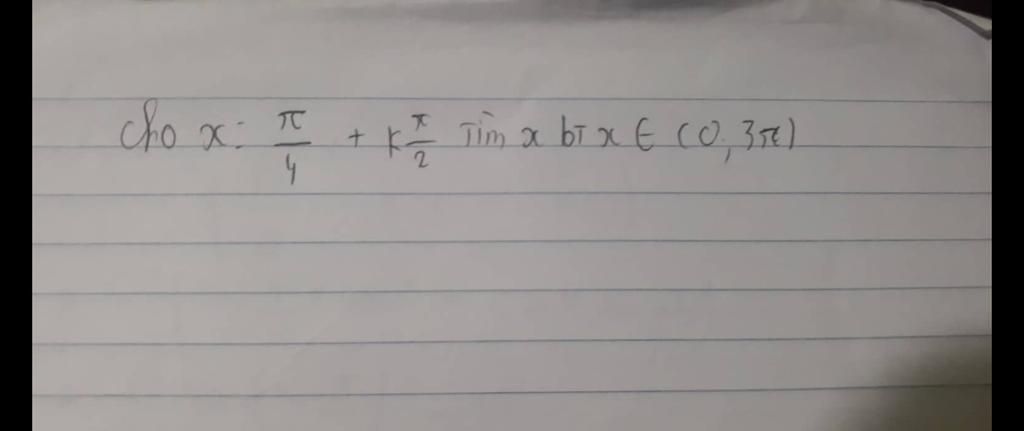 Cho x = π/4 + k π/2 Tìm x bT x ∈ (0, 3π)